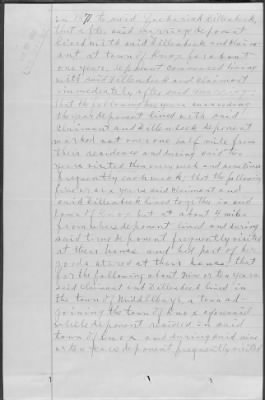 in 1871 to said Zachariah Dillenbeck,
that after said marriage deponent
lived with said Dillenbeck and claim-
ant at town of Knox for about
one year, deponent commenced living
with said Dillenbeck and claimant
immediately after said marriage.
That the following two years succeeding
the year deponent lived with said
claimant and Dillenbeck deponent
worked not over one half mile from
their residence and during said two
years visited them every week and sometimes
frequently each week; that the following
five or six years said claimant and
said Dillenbeck lived together in said
town of Knox but at about 4 miles
from where deponent lived and during
said time deponent frequently visited
at their home and kept part of her
goods stored at their house; that
for the following about nine or ten years
said claimant and Dillenbeck lived in
the town of Middleburgh, a town ad-
joining the town of Knox aforesaid
while deponent resided in said
town of Knox and during said nine
or ten years deponent frequently visited